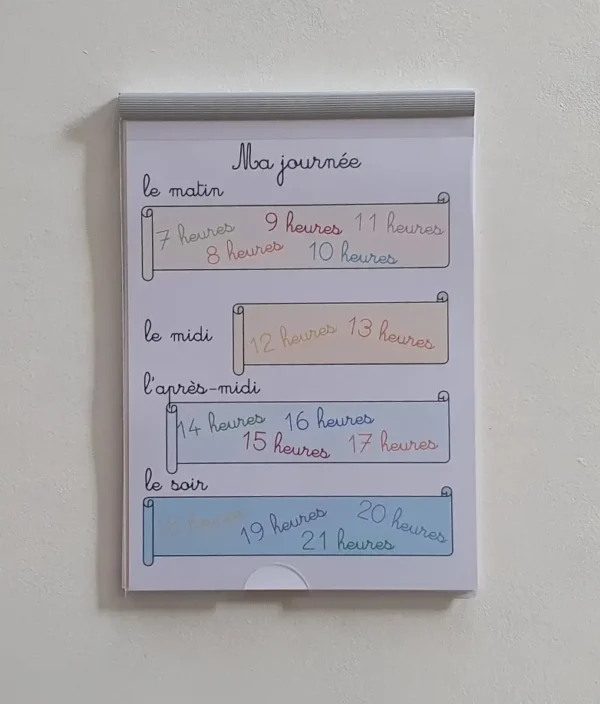 Ma journée
le matin
7 heures 9 heures 11 heures
8 heures 10 heures
le midi
12 heures 13 heures
l'après-midi
14 heures 16 heures
15 heures 17 heures
le soir
heures 19 heures 20 heures
21 heures